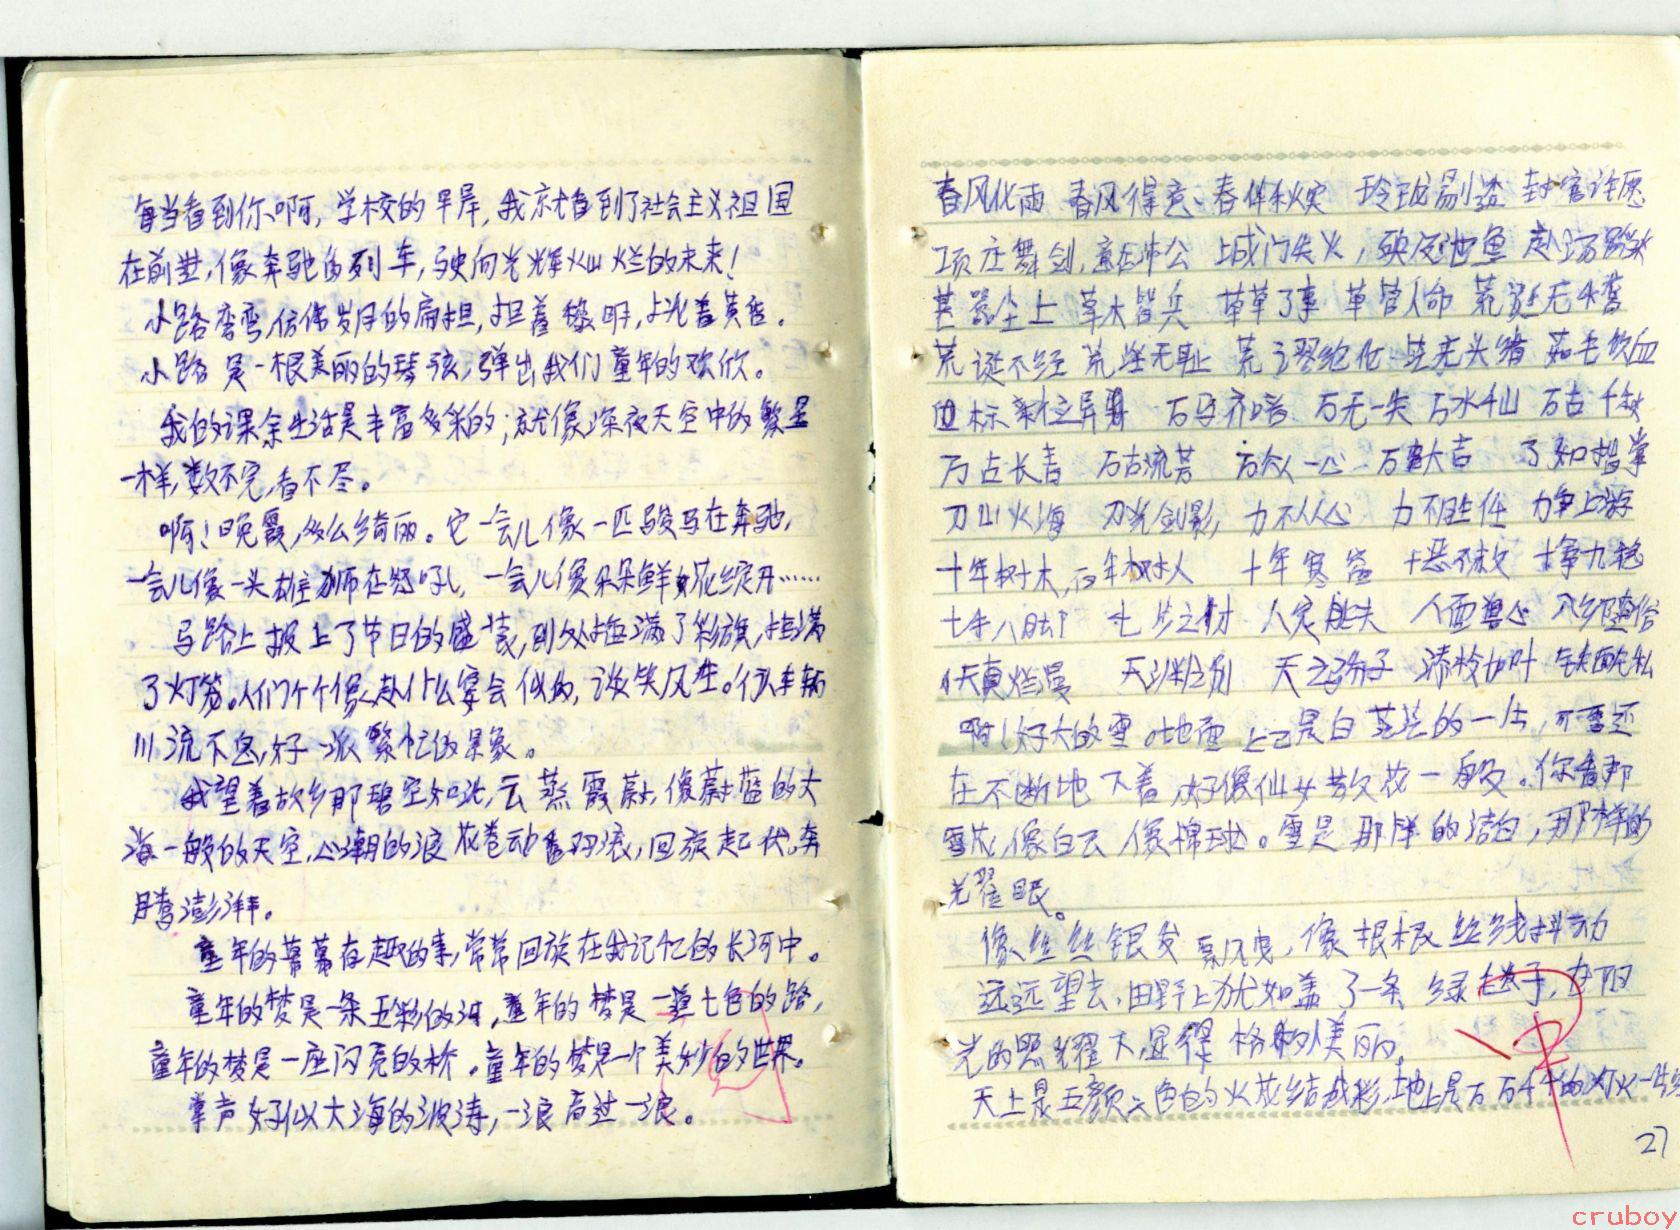 每当看到你啊,学校的早岸,我就看到了社会主义祖国
在前进,像奔驰的列车,驶向光辉灿烂的未来!
小路弯弯,仿佛岁月的扁担,担着黎明,挑着黄昏。
小路是一根美丽的琴弦,弹出我们童年的欢欣。
我的课余生活是丰富多彩的;就像深夜天空中的繁星
一样,数不完,看不尽。
啊!晚霞,多么绮丽。它一会儿像一匹骏马在奔驰,
一会儿像一头雄狮在怒吼,一会儿像朵朵鲜花绽开……
马路上披上了节日的盛装,到处插满了彩旗,挂满
了灯笼。人们个个像赴什么宴会似的,谈笑风生。行车辆
川流不息,好一派繁忙的景象。
我望着故乡那碧空如洗,云蒸霞蔚,像蔚蓝的大
海一般的天空,心潮的浪花卷动着羽浪,回旋起伏,奔
腾澎湃。
童年的幕幕有趣的事,常常回旋在我记忆的长河中。
童年的梦是一条五彩的河,童年的梦是一道七色的路,
童年的梦是一座闪亮的桥。童年的梦是一个美妙的世界。
掌声好似大海的波涛,一浪高过一浪。
春风化雨 春风得意 春华秋实 玲珑剔透 封官许愿
项庄舞剑,意在沛公 城门失火,殃及池鱼 赴汤蹈火
甚嚣尘上 草木皆兵 草草了事 草菅人命 荒诞无稽
荒诞不经 荒淫无耻 荒 茫无头绪 茹毛饮血
标新立异 万马齐喑 万无一失 万水千山 万古千秋
万古长青 万古流芳 万众一心 万事大吉 了如指掌
刀山火海 刀光剑影 力不从心 力不胜任 力争上游
十年树木,百年树人 十年寒窗 十恶不赦 十拿九稳
七手八脚 七步之才 人定胜天 人面兽心 入乡随俗
天真烂漫 天 之 天之骄子 添枝加叶 铁面无私
啊!好大的雪。地面上已是白茫茫的一片,可雪还
在不断地下着,好像仙女散花一般。你看那
雪花,像白云,像棉球。雪是那样的洁白,那样的
光耀眼。
像丝丝银发飘风曳,像根根丝线抖动
远远望去,田野上犹如盖了一条绿毯子,在阳
光的照耀下,显得格外美丽。
天上是五颜六色的火花结成彩,地上是万万千千的灯火一片
27
cruboy